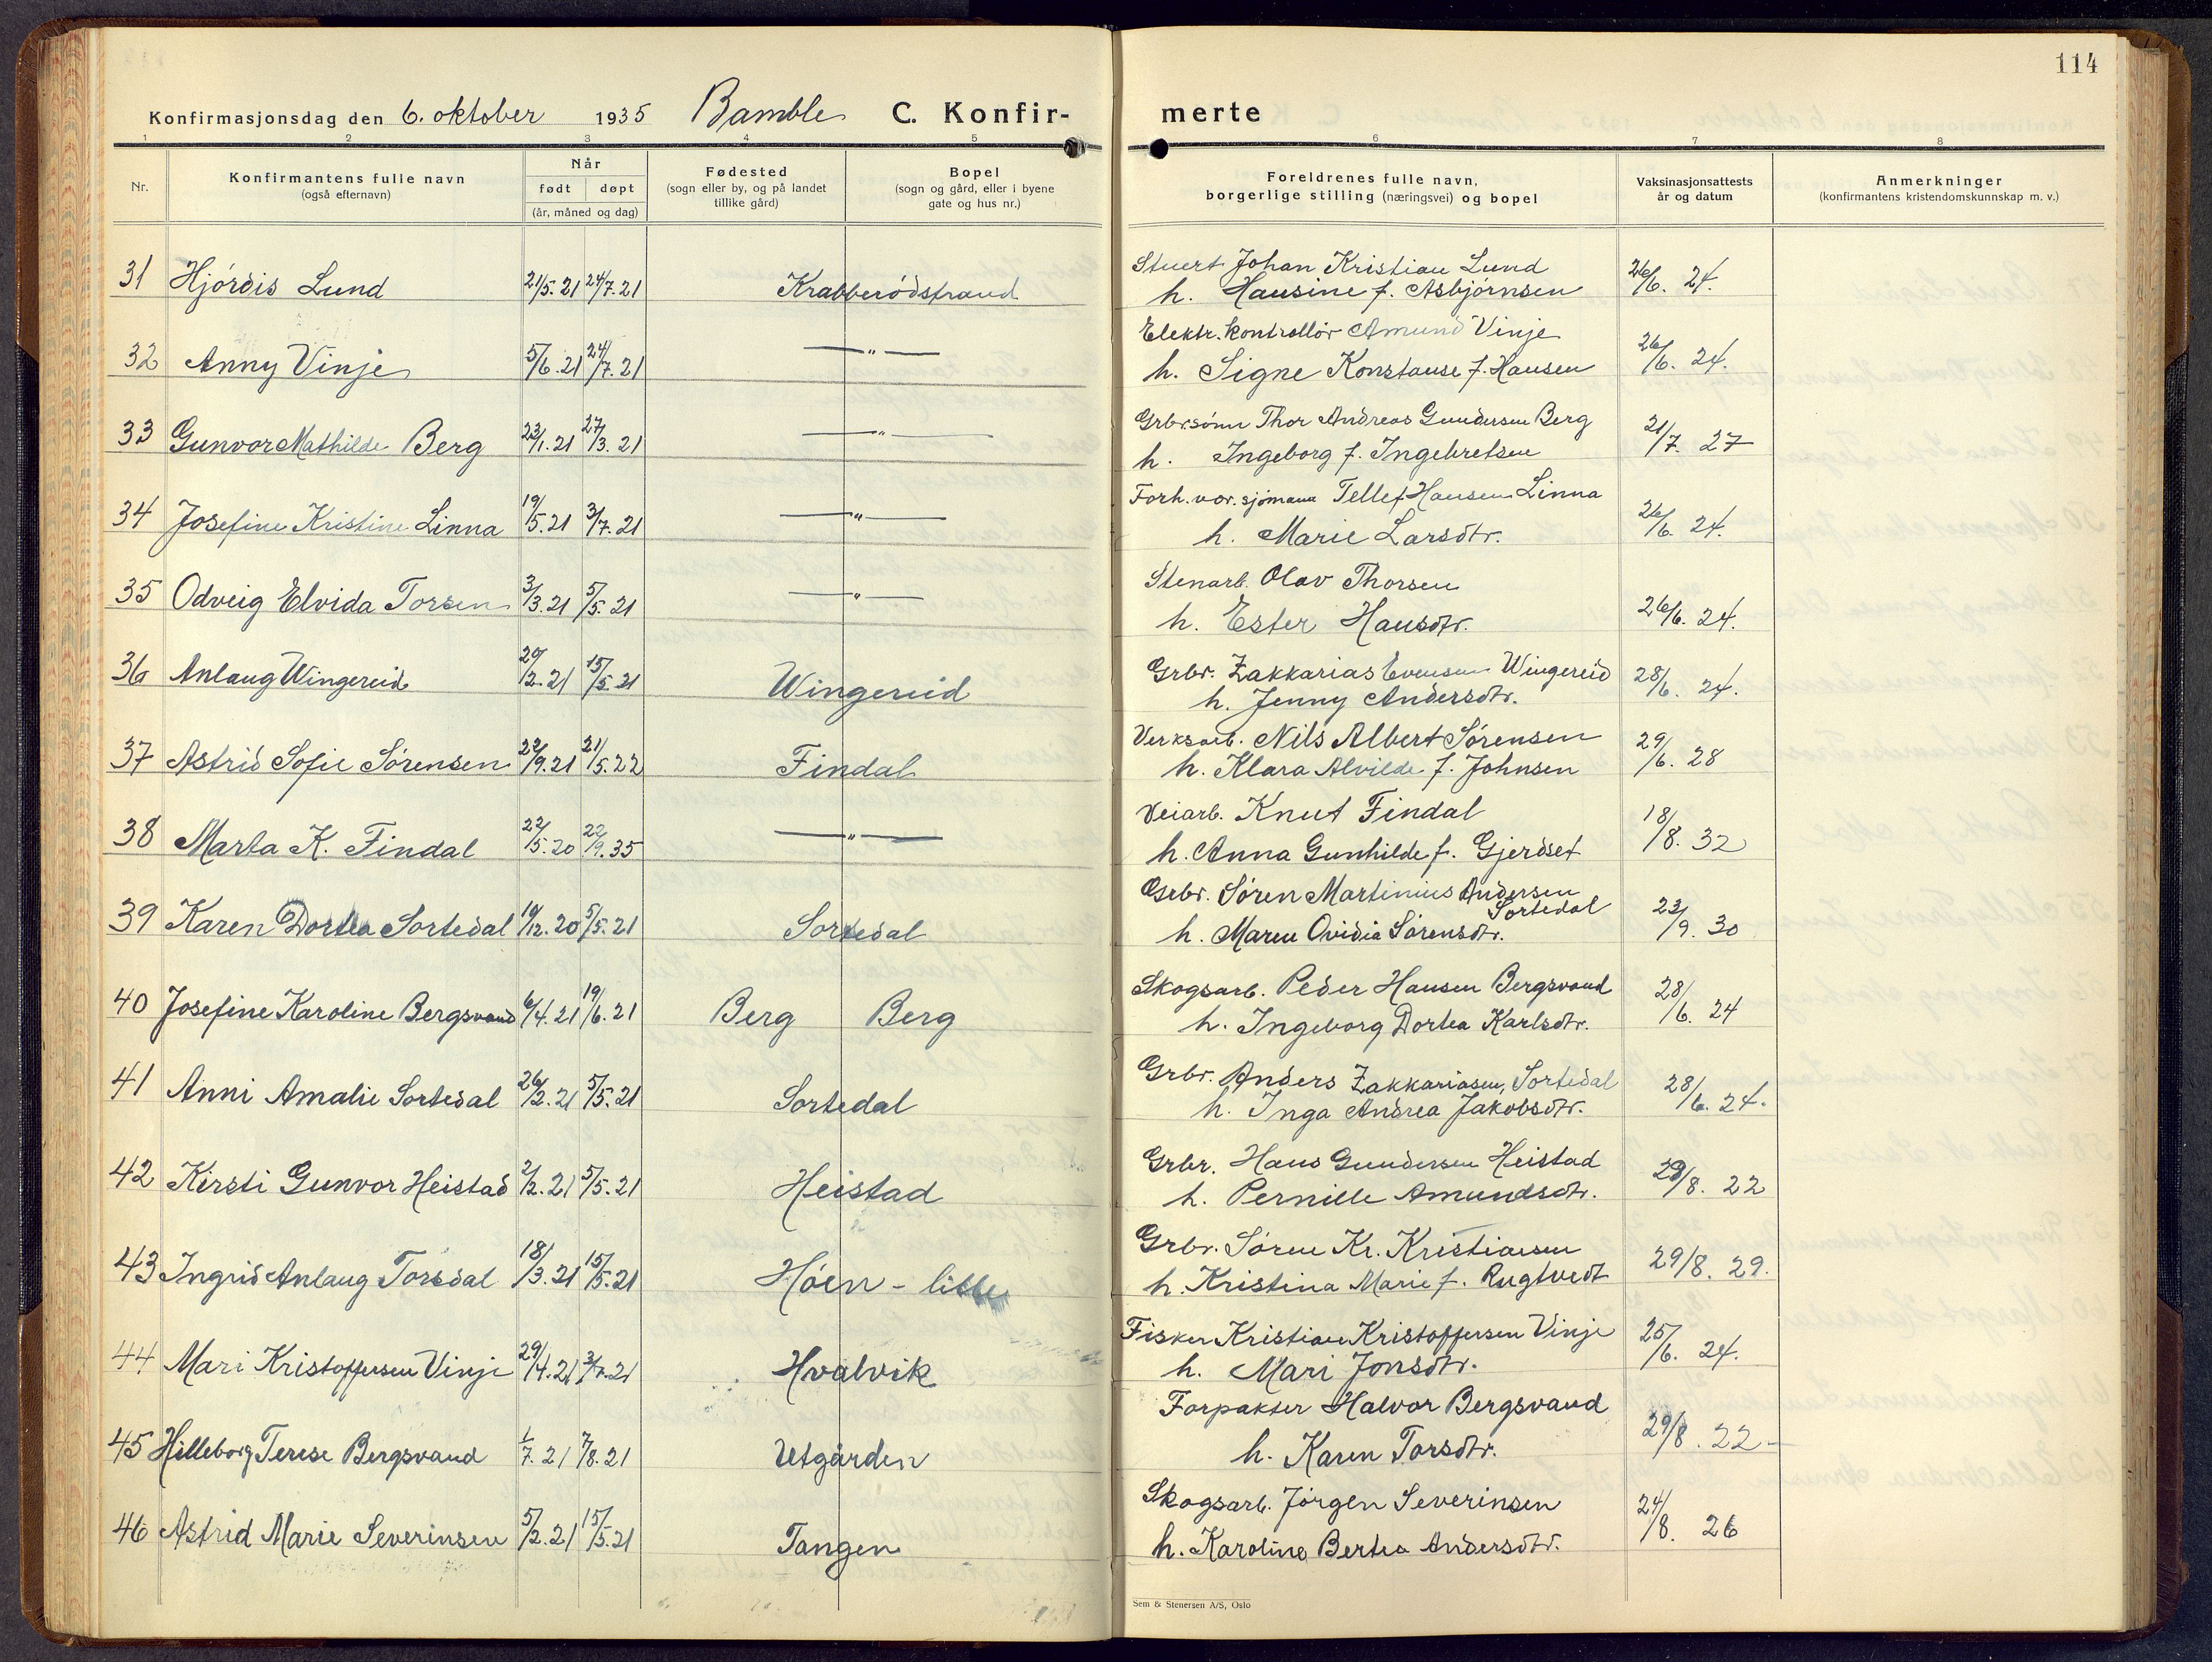 114
Konfirmasjonsdag den 6. oktober 1935 Bamble C. Konfir-
merte
1 2 3 4 5 6 7 8
Nr.
Konfirmantens fulle navn
(også efternavn)
Når
født døpt
(år, måned og dag)
Fødested
(sogn eller by, og på landet
tillike gård)
Bopel
(sogn og gård, eller i byene
gate og hus nr.)
Foreldrenes fulle navn,
borgerlige stilling (næringsvei) og bopel
Vaksinasjonsattests
år og datum
Anmerkninger
(konfirmantens kristendomskunnskap m. v.)
31 Hjördis Lund 21/5. 21 24/7. 21 Krabberödstrand
Stuert Johan Kristian Lund
h. Hansine f. Asbjörnsen 26/6. 24.
32 Anny Vinje 5/6. 21 24/7. 21 — " —
Elektr. kontrollör Amund Vinje
h. Signe Konstanse f. Hansen 26/6. 24.
33 Gunvor Mathilde Berg 23/1. 21 27/3. 21 — " —
Grbr.sönn Thor Andreas Gundersen Berg
h. Ingeborg f. Ingebretsen 21/7. 27
34 Josefine Kristine Linna 19/5. 21 3/7. 21 — " —
Forh. vor. sjömann Tellef Hansen Linna
h. Marie Larsdtr. 26/6. 24.
35 Odveig Elvida Torsen 3/3. 21 5/5. 21 — " —
Stenarb. Olav Thorsen
h. Ester Hansdtr. 26/6. 24.
36 Anlaug Wingereid 20/2. 21 15/5. 21 Wingereid
Grbr. Zakkarias Evensen Wingereid
h. Jenny Andersdtr. 28/6. 24.
37 Astrid Sofie Sörensen 22/9. 21 21/5. 22 Findal
Verksarb. Nils Albert Sörensen
h. Klara Alvilde f. Johnsen 29/6. 28
38 Marta K. Findal 22/5. 20 22/9. 35 — " —
Veiarb. Knut Findal
h. Anna Gunhilde f. Gjerdset 18/8. 32
39 Karen Dortea Sortedal 19/12. 20 5/5. 21 Sortedal
Grbr. Sören Martinius Andersen
Sortedal
h. Maren Ovidia Sörensdtr. 23/9. 30
40 Josefine Karoline Bergsvand 6/4. 21 19/6. 21 Berg Berg
Skogsarb. Peder Hansen Bergsvand
h. Ingeborg Dortea Karlsdtr. 28/6. 24
41 Anni Amalie Sortedal 26/2. 21 5/5. 21 Sortedal
Grbr. Anders Zakkariasen, Sortedal
h. Inga Andrea Jakobsdtr. 28/6. 24.
42 Kirsti Gunvor Heistad 2/2. 21 5/5. 21 Heistad
Grbr. Hans Gundersen Heistad
h. Pernille Amundsdtr. 29/8. 22
43 Ingrid Anlaug Torsdal 18/3. 21 15/5. 21 Höen - lille
Grbr. Sören Kr. Kristiansen
h. Kristina Marie f. Rugtvedt 29/8. 29.
44 Mari Kristoffersen Vinje 29/4. 21 3/7. 21 Hvalvik
Fisker Kristian Kristoffersen Vinje
h. Mari Jonsdtr. 25/6. 24.
45 Hilleborg Terese Bergsvand 1/7. 21 7/8. 21 Utgården
Forpakter Halvor Bergsvand
h. Karen Torsdtr. 29/8. 22-
46 Astrid Marie Severinsen 5/2. 21 15/5. 21 Tangen
Skogsarb. Jörgen Severinsen
h. Karoline Bertea Andersdtr. 24/8. 26
Sem & Stenersen A/S, Oslo